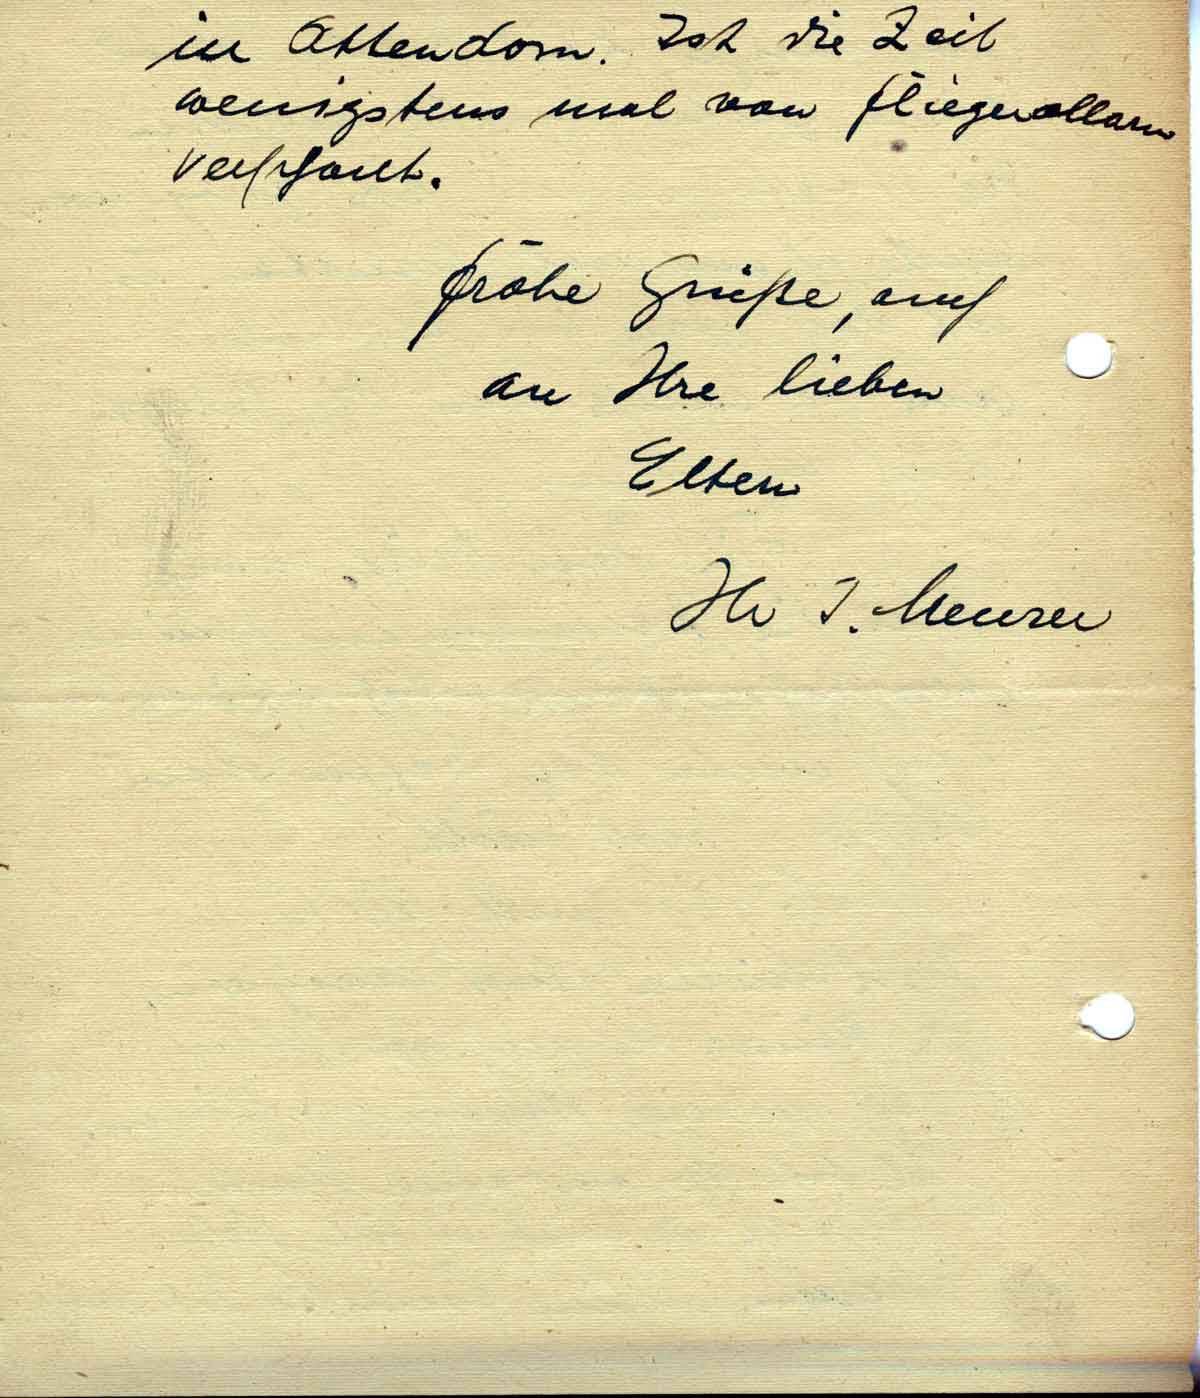 in Attendorn. Ist die Zeit
wenigstens mal von Fliegerallarm
verschont.
Frohe Grüße, auch
an Ihre lieben
Eltern
Ihr J. Meurer